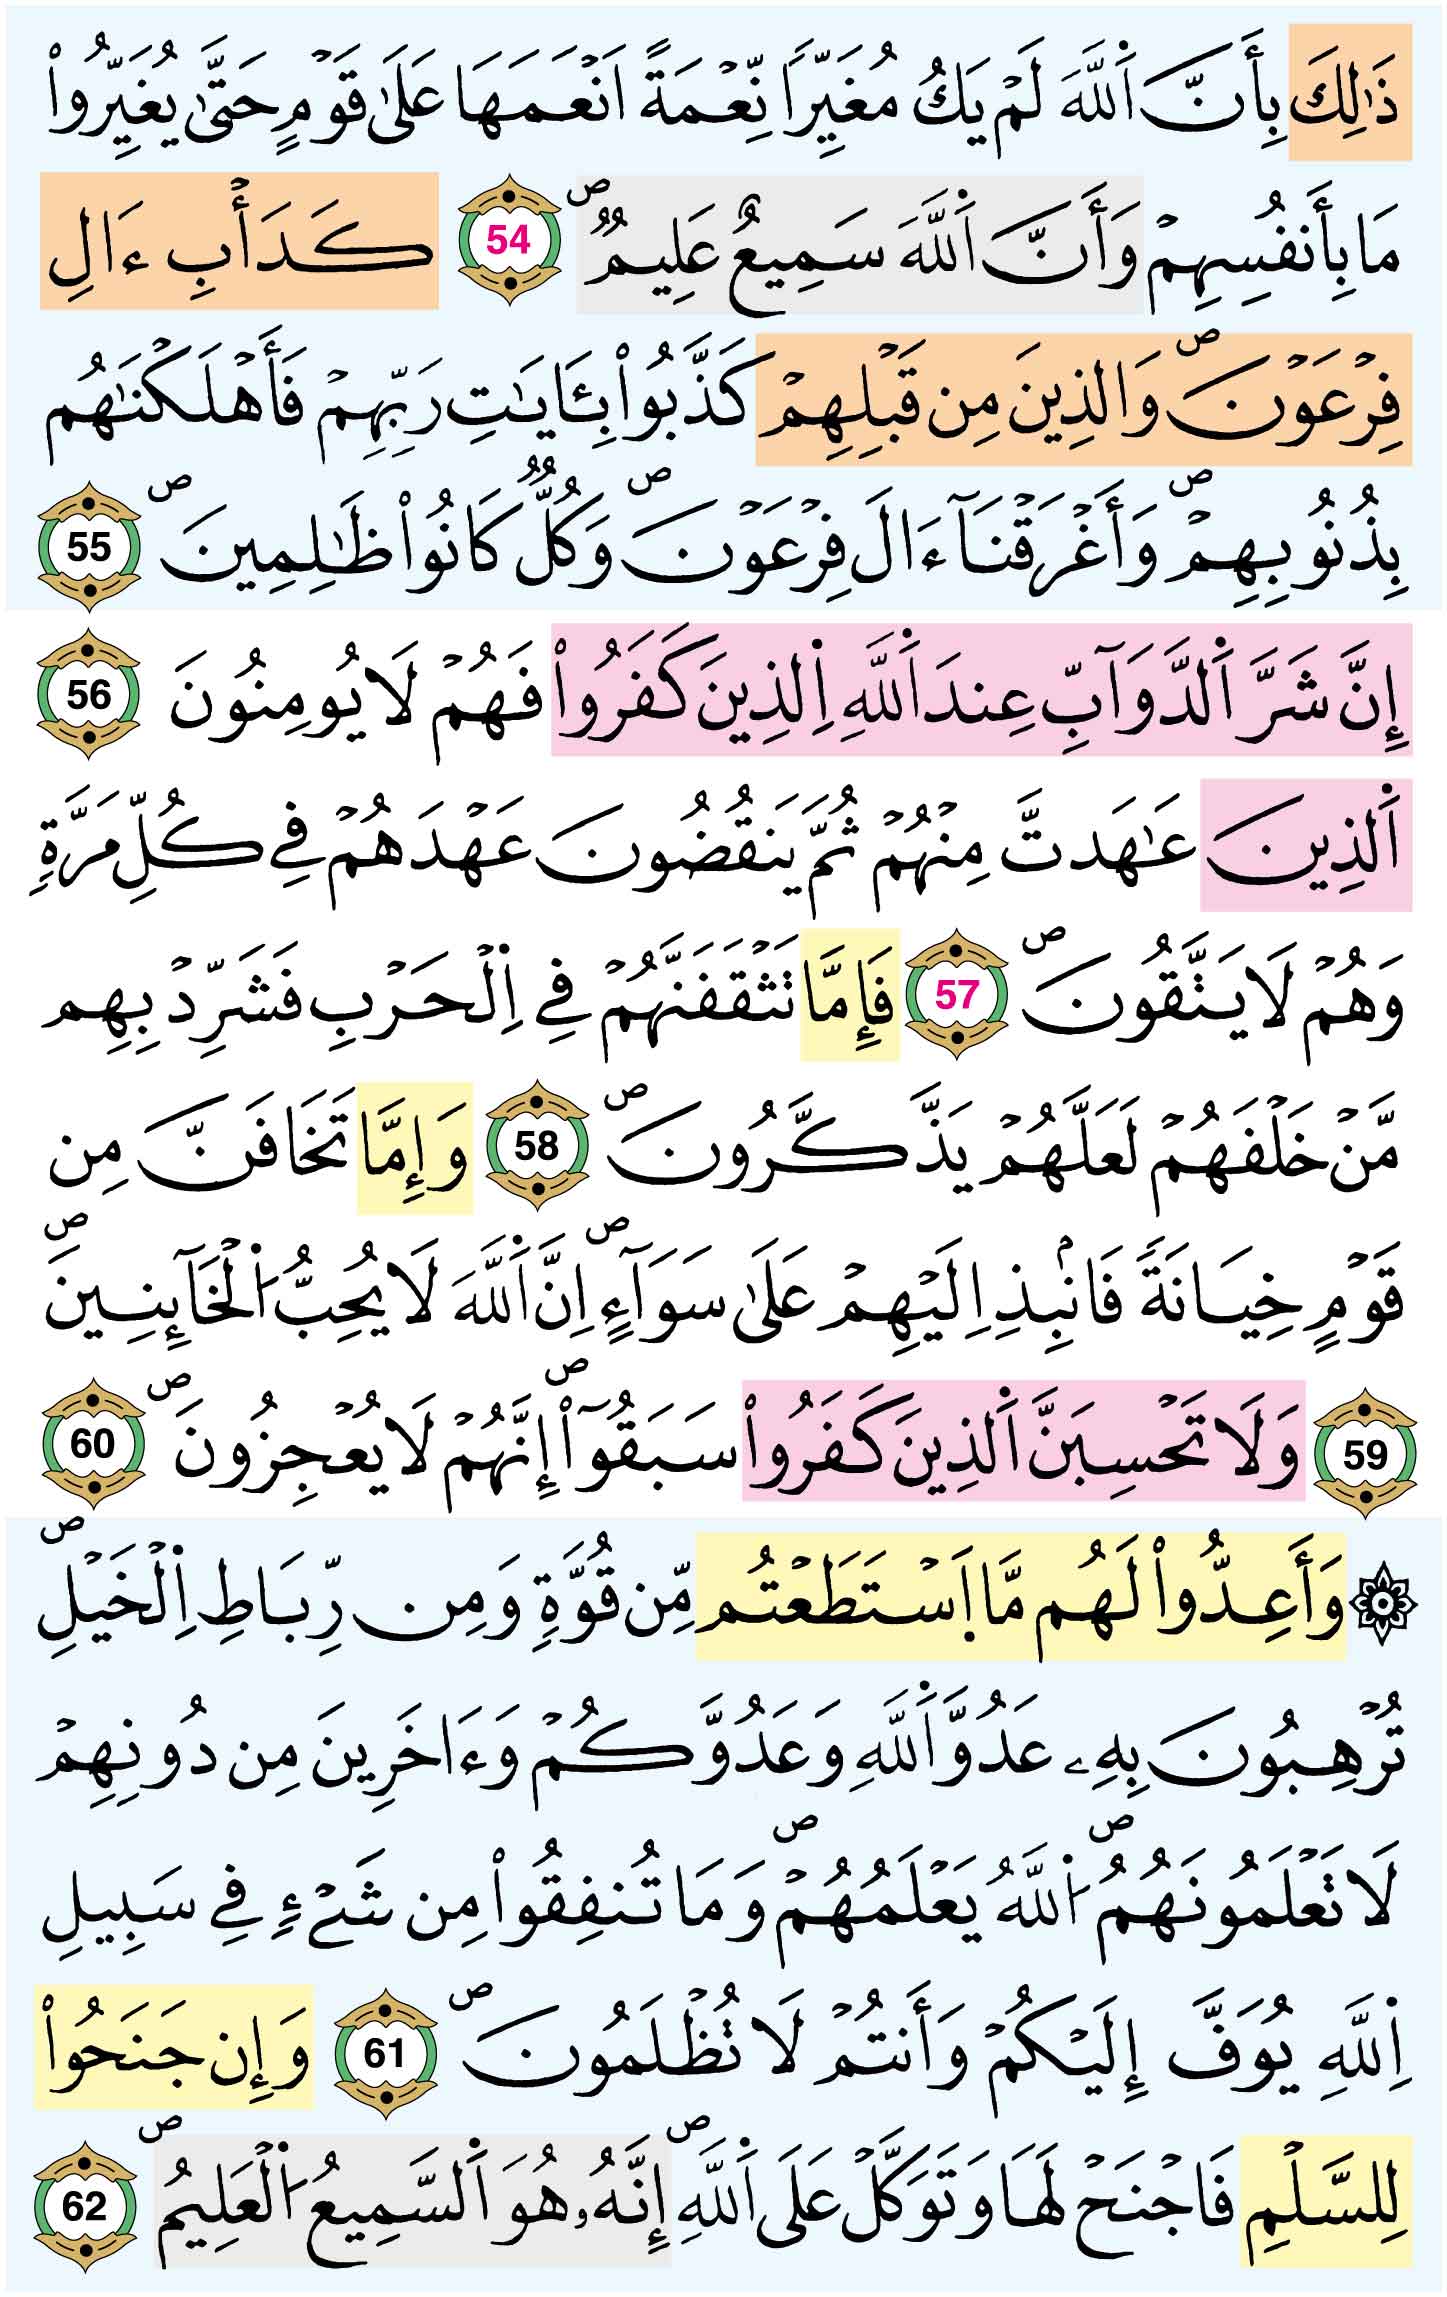 ذَٰلِكَ بِأَنَّ اَ۬للَّهَ لَمْ يَكُ مُغَيِّراٗ نِّعْمَةً اَنْعَمَهَا عَلَىٰ قَوْمٍ حَتَّىٰ يُغَيِّرُواْ
مَا بِأَنفُسِهِمْ وَأَنَّ اَ۬للَّهَ سَمِيعٌ عَلِيمٞۖ 54 كَدَأْبِ ءَالِ
فِرْعَوْنَۖ وَالذِينَ مِن قَبْلِهِمْ كَذَّبُواْ بِـَٔايَٰتِ رَبِّهِمْ فَأَهْلَكْنَٰهُم
بِذُنُوبِهِمْۖ وَأَغْرَقْنَآ ءَالَ فِرْعَوْنَۖ وَكُلّٞ كَانُواْ ظَٰلِمِينَۖ 55
إِنَّ شَرَّ اَ۬لدَّوَآبِّ عِندَ اَ۬للَّهِ اِ۬لذِينَ كَفَرُواْ فَهُمْ لَا يُومِنُونَ 56
اَ۬لذِينَ عَٰهَدتَّ مِنْهُمْ ثُمَّ يَنقُضُونَ عَهْدَهُمْ فِے كُلِّ مَرَّةٖ
وَهُمْ لَا يَتَّقُونَۖ 57 فَإِمَّا تَثْقَفَنَّهُمْ فِے اِ۬لْحَرْبِ فَشَرِّدْ بِهِم
مَّنْ خَلْفَهُمْ لَعَلَّهُمْ يَذَّكَّرُونَۖ 58 وَإِمَّا تَخَافَنَّ مِن
قَوْمٍ خِيَانَةٗ فَانۢبِذِ اِلَيْهِمْ عَلَىٰ سَوَآءٍۖ اِنَّ اَ۬للَّهَ لَا يُحِبُّ اُ۬لْخَآئِنِينَۖ
59 وَلَا تَحْسِبَنَّ اَ۬لذِينَ كَفَرُواْ سَبَقُوٓاْۖ إِنَّهُمْ لَا يُعْجِزُونَۖ 60
۞ وَأَعِدُّواْ لَهُم مَّا اَ۪سْتَطَعْتُم مِّن قُوَّةٖ وَمِن رِّبَاطِ اِ۬لْخَيْلِۖ
تُرْهِبُونَ بِهِۦ عَدُوَّ اَ۬للَّهِ وَعَدُوَّكُمْ وَءَاخَرِينَ مِن دُونِهِمْ
لَا تَعْلَمُونَهُمُۖ اُ۬للَّهُ يَعْلَمُهُمْۖ وَمَا تُنفِقُواْ مِن شَےْءٖ فِے سَبِيلِ
اِ۬للَّهِ يُوَفَّ إِلَيْكُمْ وَأَنتُمْ لَا تُظْلَمُونَۖ 61 وَإِن جَنَحُواْ
لِلسَّلْمِ فَاجْنَحْ لَهَا وَتَوَكَّلْ عَلَى اَ۬للَّهِۖ إِنَّهُۥ هُوَ اَ۬لسَّمِيعُ اُ۬لْعَلِيمُۖ 62